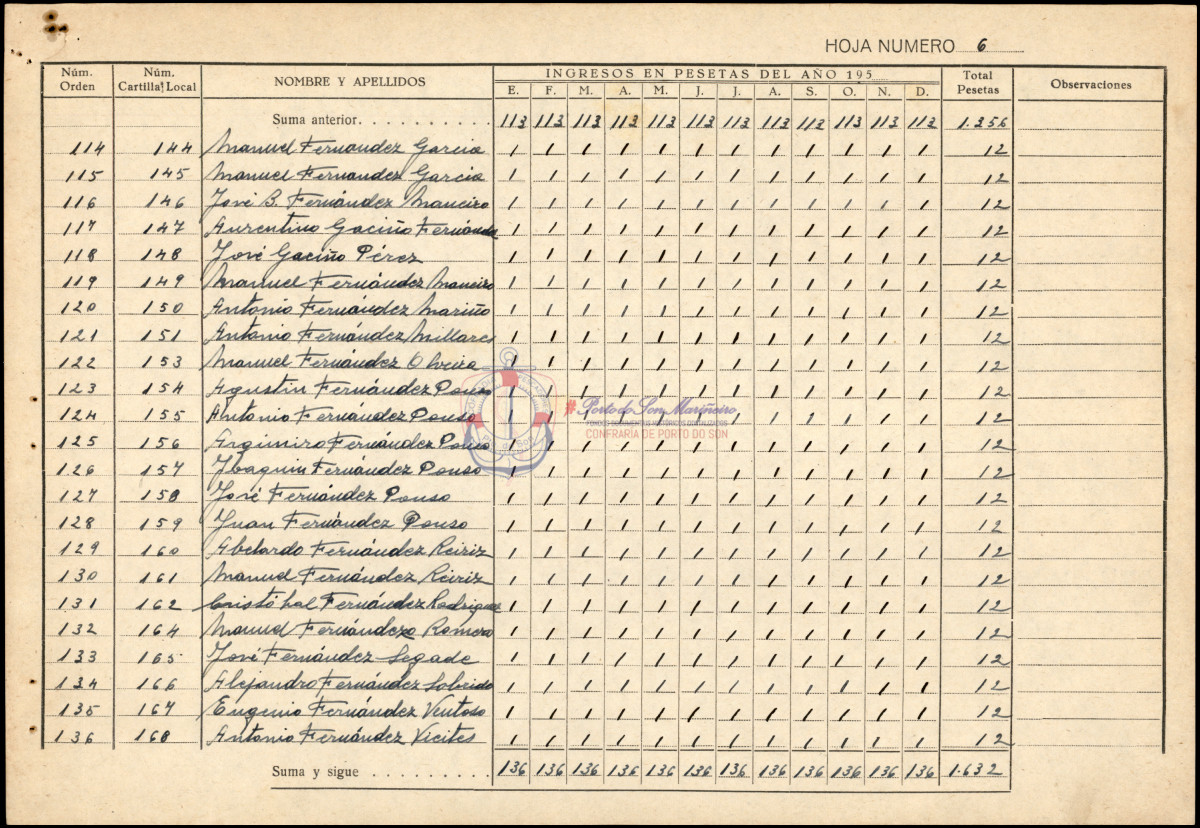 HOJA NUMERO 6
Núm. Orden Núm. Cartilla Local NOMBRE Y APELLIDOS INGRESOS EN PESETAS DEL AÑO 195 Total Pesetas Observaciones
E. F. M. A. M. J. J. A. S. O. N. D.
Suma anterior. . . . . . . . . . 113 113 113 113 113 113 113 113 113 113 113 113 1.356
114 144 Manuel Fernandez Garcia 1 1 1 1 1 1 1 1 1 1 1 1 12
115 145 Manuel Fernandez Garcia 1 1 1 1 1 1 1 1 1 1 1 1 12
116 146 José B. Fernández Maneiro 1 1 1 1 1 1 1 1 1 1 1 1 12
117 147 Aurentino Gaciño Fernández 1 1 1 1 1 1 1 1 1 1 1 1 12
118 148 José Gaciño Pérez 1 1 1 1 1 1 1 1 1 1 1 1 12
119 149 Manuel Fernández Maneiro 1 1 1 1 1 1 1 1 1 1 1 1 12
120 150 Antonio Fernández Mariño 1 1 1 1 1 1 1 1 1 1 1 1 12
121 151 Antonio Fernández Millares 1 1 1 1 1 1 1 1 1 1 1 1 12
122 153 Manuel Fernández Olveira 1 1 1 1 1 1 1 1 1 1 1 1 12
123 154 Agustin Fernández Pouso 1 1 1 1 1 1 1 1 1 1 1 1 12
124 155 Antonio Fernández Pouso 1 1 1 1 1 1 1 1 1 1 1 1 12
125 156 Argimiro Fernández Pouso 1 1 1 1 1 1 1 1 1 1 1 1 12
126 157 Joaquin Fernández Pouso 1 1 1 1 1 1 1 1 1 1 1 1 12
127 158 José Fernández Pouso 1 1 1 1 1 1 1 1 1 1 1 1 12
128 159 Juan Fernández Pouso 1 1 1 1 1 1 1 1 1 1 1 1 12
129 160 Abelardo Fernández Reiriz 1 1 1 1 1 1 1 1 1 1 1 1 12
130 161 Manuel Fernández Reiriz 1 1 1 1 1 1 1 1 1 1 1 1 12
131 162 Cristóbal Fernández Rodriguez 1 1 1 1 1 1 1 1 1 1 1 1 12
132 164 Manuel Fernández Romero 1 1 1 1 1 1 1 1 1 1 1 1 12
133 165 José Fernández Segade 1 1 1 1 1 1 1 1 1 1 1 1 12
134 166 Alejandro Fernández Sobrido 1 1 1 1 1 1 1 1 1 1 1 1 12
135 167 Eugenio Fernández Ventoso 1 1 1 1 1 1 1 1 1 1 1 1 12
136 168 Antonio Fernández Vicites 1 1 1 1 1 1 1 1 1 1 1 1 12
Suma y sigue . . . . . . . . . 136 136 136 136 136 136 136 136 136 136 136 136 1.632
#Porto do Son Mariñeiro
CONFRARÍA DE PORTO DO SON